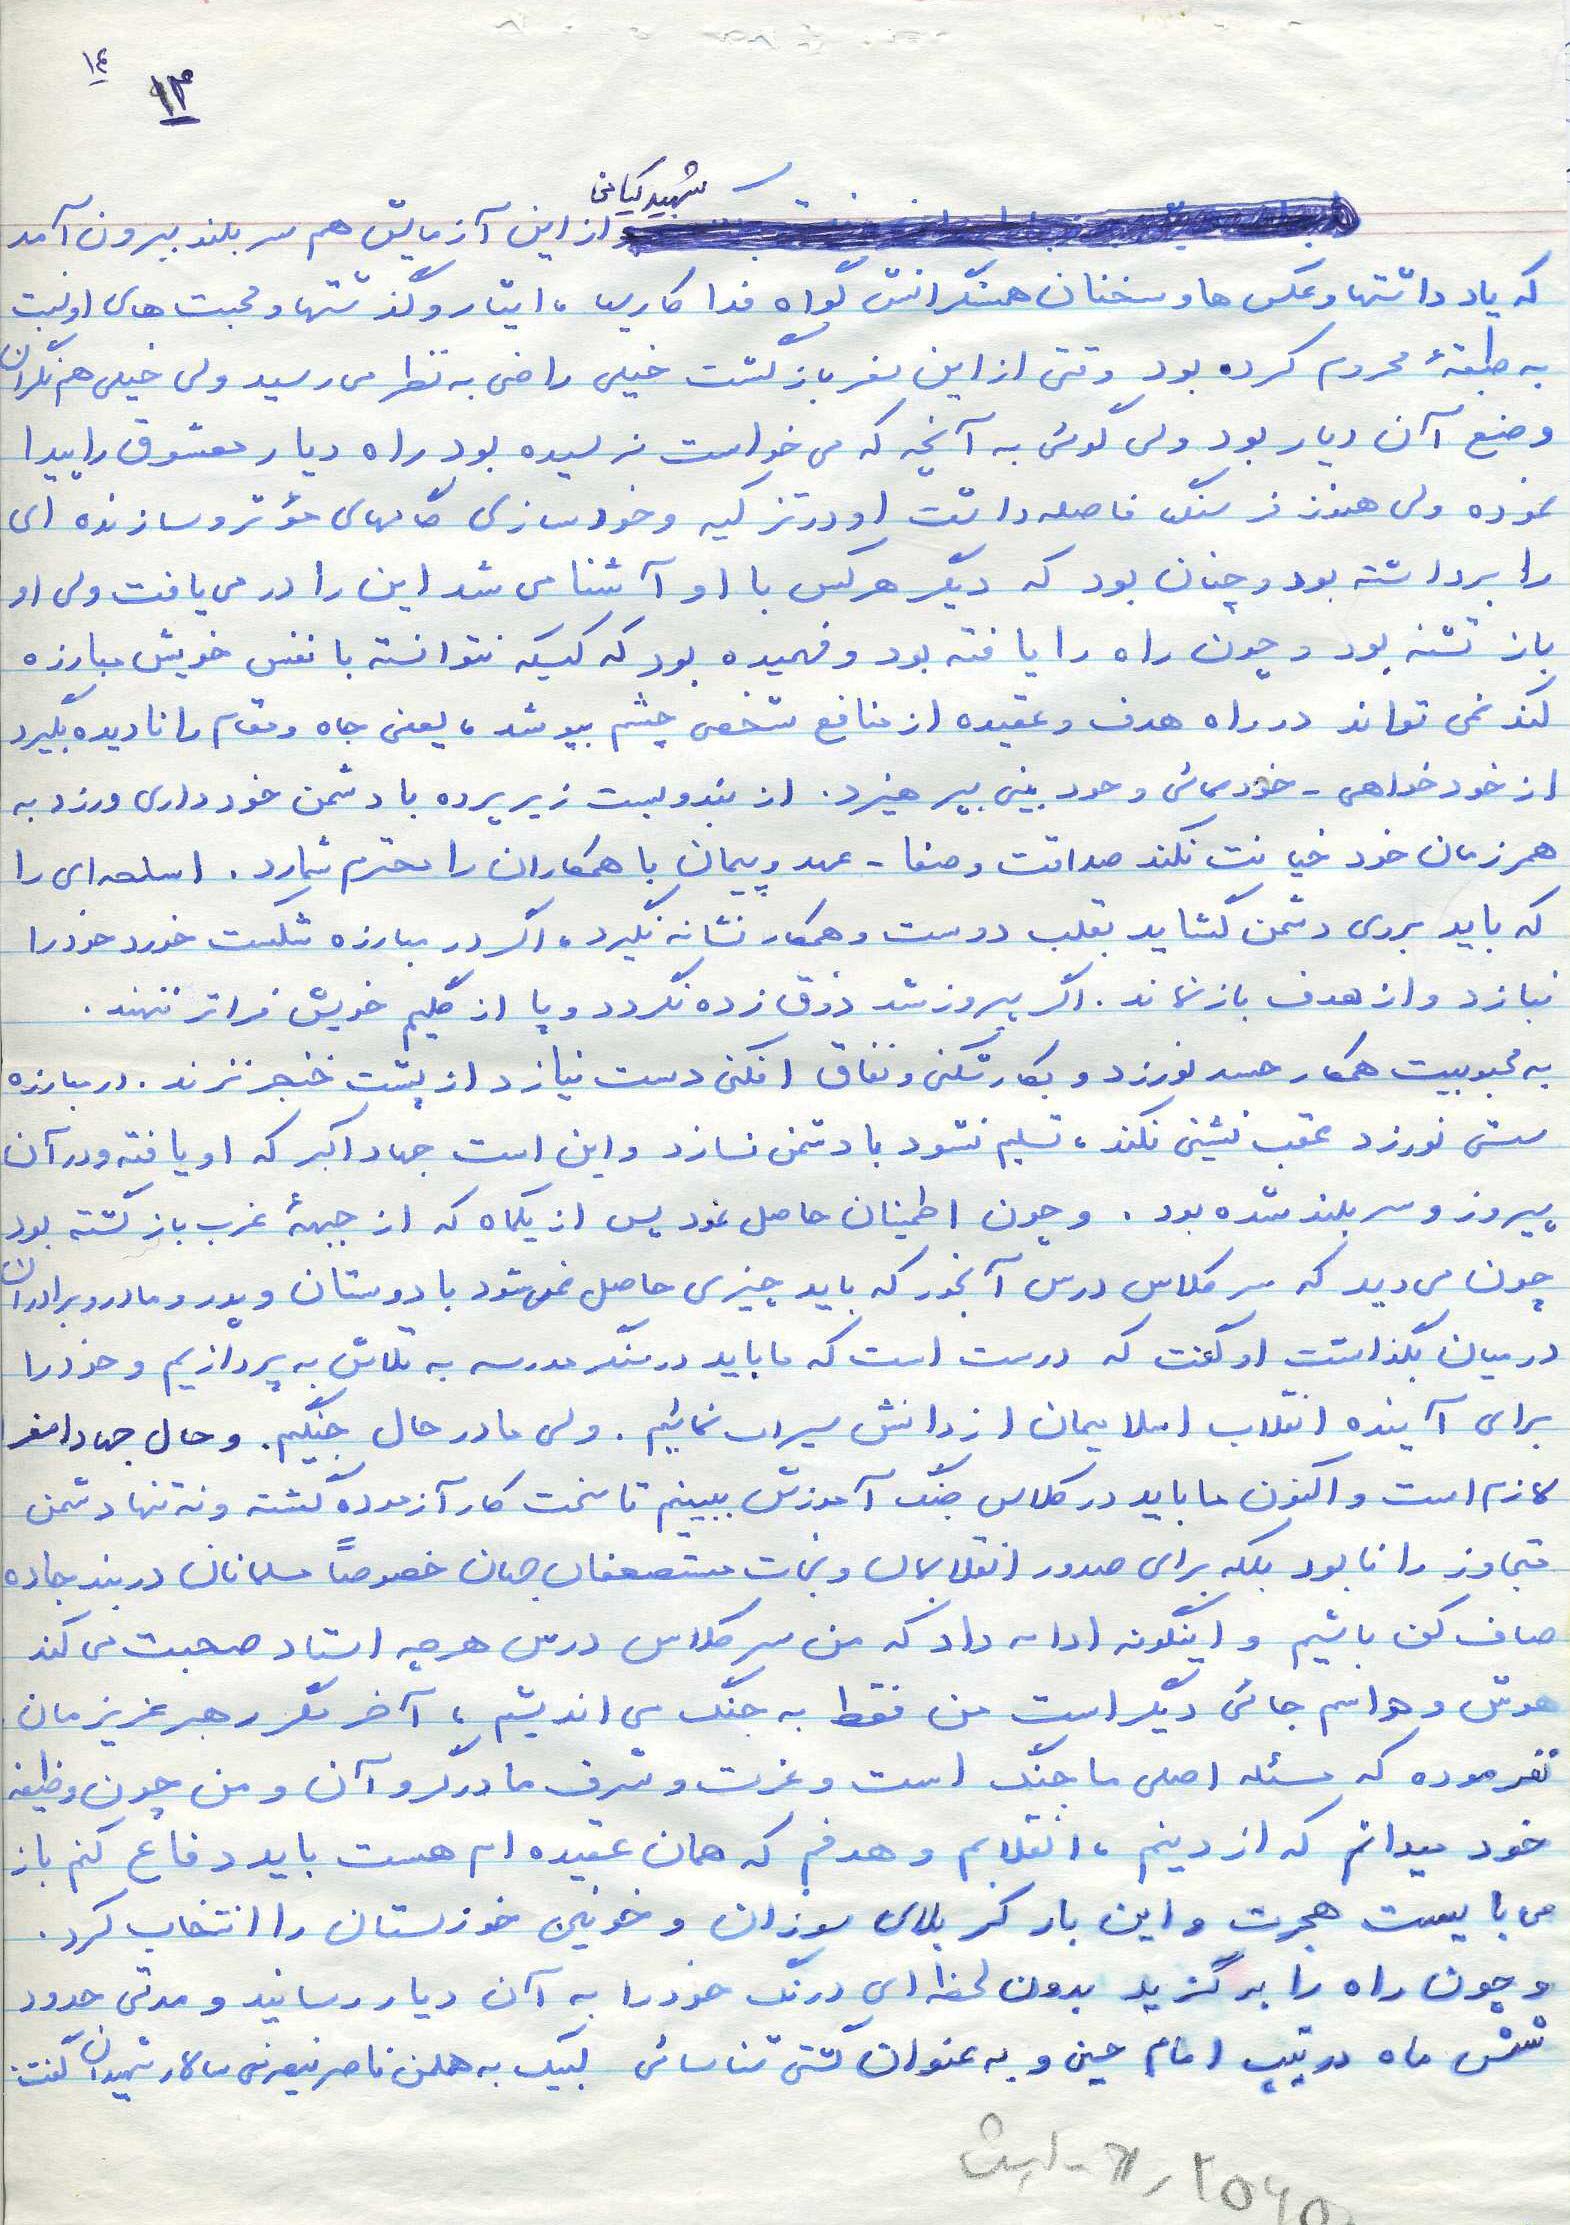 ١٤
١٣
شهید کیانی
از این آزمایش هم سر بلند بیرون آمد
که یاد داشتها و عکس ها و سخنان همسنگرانش گواه فدا کاریها ، ایثار و گذ شتها و محبت های او نسبت
به طبقهٔ محروم کرده بود وقتی از این سفر باز گشت خیلی راضی به نظر می رسید ولی خیلی هم نگران
وضع آن دیار بود ولی گوئی به آنچه که می خواست نرسیده بود راه دیار معشوق را پیدا
نموده ولی هنوز فرسنگ فاصله داشت او در تزکیه و خود سازی گامهای مؤثر و سازنده ای
را برداشته بود و چنان بود که دیگر هر کس با او آشنا می شد این را در می یافت ولی او
باز تشنه بود و چون راه را یافته بود و فهمیده بود که کسیکه نتوانسته با نفس خویش مبارزه
کند نمی تواند در راه هدف و عقیده از منافع شخصی چشم بپوشد ، یعنی جاه و مقام را نادیده بگیرد
از خود خواهی - خودنمائی و خود بینی بپرهیزد . از بند و بست زیر پرده با دشمن خود داری ورزد به
همرزمان خود خیانت نکند صداقت و صفا - عهد و پیمان با همکاران را محترم شمارد . اسلحه ای را
که باید بروی دشمن گشاید بقلب دوست و همکار نشانه نگیرد ، اگر در مبارزه شکست خورد خود را
نبازد و از هدف باز نماند . اگر پیروز شد ذوق زده نگردد و پا از گلیم خویش فراتر ننهند .
به محبوبیت همکار حسد نورزد و بکار شکنی و نفاق افکنی دست نیازد از پشت خنجر نزند . در مبارزه
سستی نورزد عقب نشینی نکند ، تسلیم نشود با دشمن نسازد و این است جهاد اکبر که او یافته و در آن
پیروز و سر بلند شده بود . و چون اطمینان حاصل نمود پس از یکماه که از جبههٔ غرب باز گشته بود
چون می دید که سر کلاس درس آنجور که باید چیزی حاصل نمی شود با دوستان و پدر و مادر و برادران
در میان بگذاشت او گفت که درست است که ما باید در سنگر مدرسه به تلاش به پردازیم و خود را
برای آینده انقلاب اسلامیمان از دانش سیراب نمائیم . ولی ما در حال جنگیم . و حال جهاد اصغر
لازم است و اکنون ما باید در کلاس جنگ آموزش ببینیم تا سخت کار آزموده گشته و نه تنها دشمن
متجاوز را نابود بلکه برای صدور انقلابمان و نجات مستضعفان جهان خصوصاً مسلمانان در بند جاده
صاف کن باشیم و اینگونه ادامه داد که من سر کلاس درس هر چه استاد صحبت می کند
هوش و هواسم جائی دیگر است من فقط به جنگ می اندیشم ، آخر مگر رهبر عزیزمان
نفرموده که مسئله اصلی ما جنگ است و عزت و شرف ما در گرو آن و من چون وظیفه
خود میدانم که از دینم ، انقلابم و هدفم که همان عقیده ام هست باید دفاع کنم باز
می بایست هجرت و این بار کربلای سوزان و خونین خوزستان را انتخاب کرد .
و چون راه را برگزید بدون لحظه ای درنگ خود را به آن دیار رسانید و مدتی حدود
شش ماه در تیپ امام حسین و به عنوان گشتی شناسائی لبیک به هلمن ناصر ینصرنی سالار شهیدان گفت :